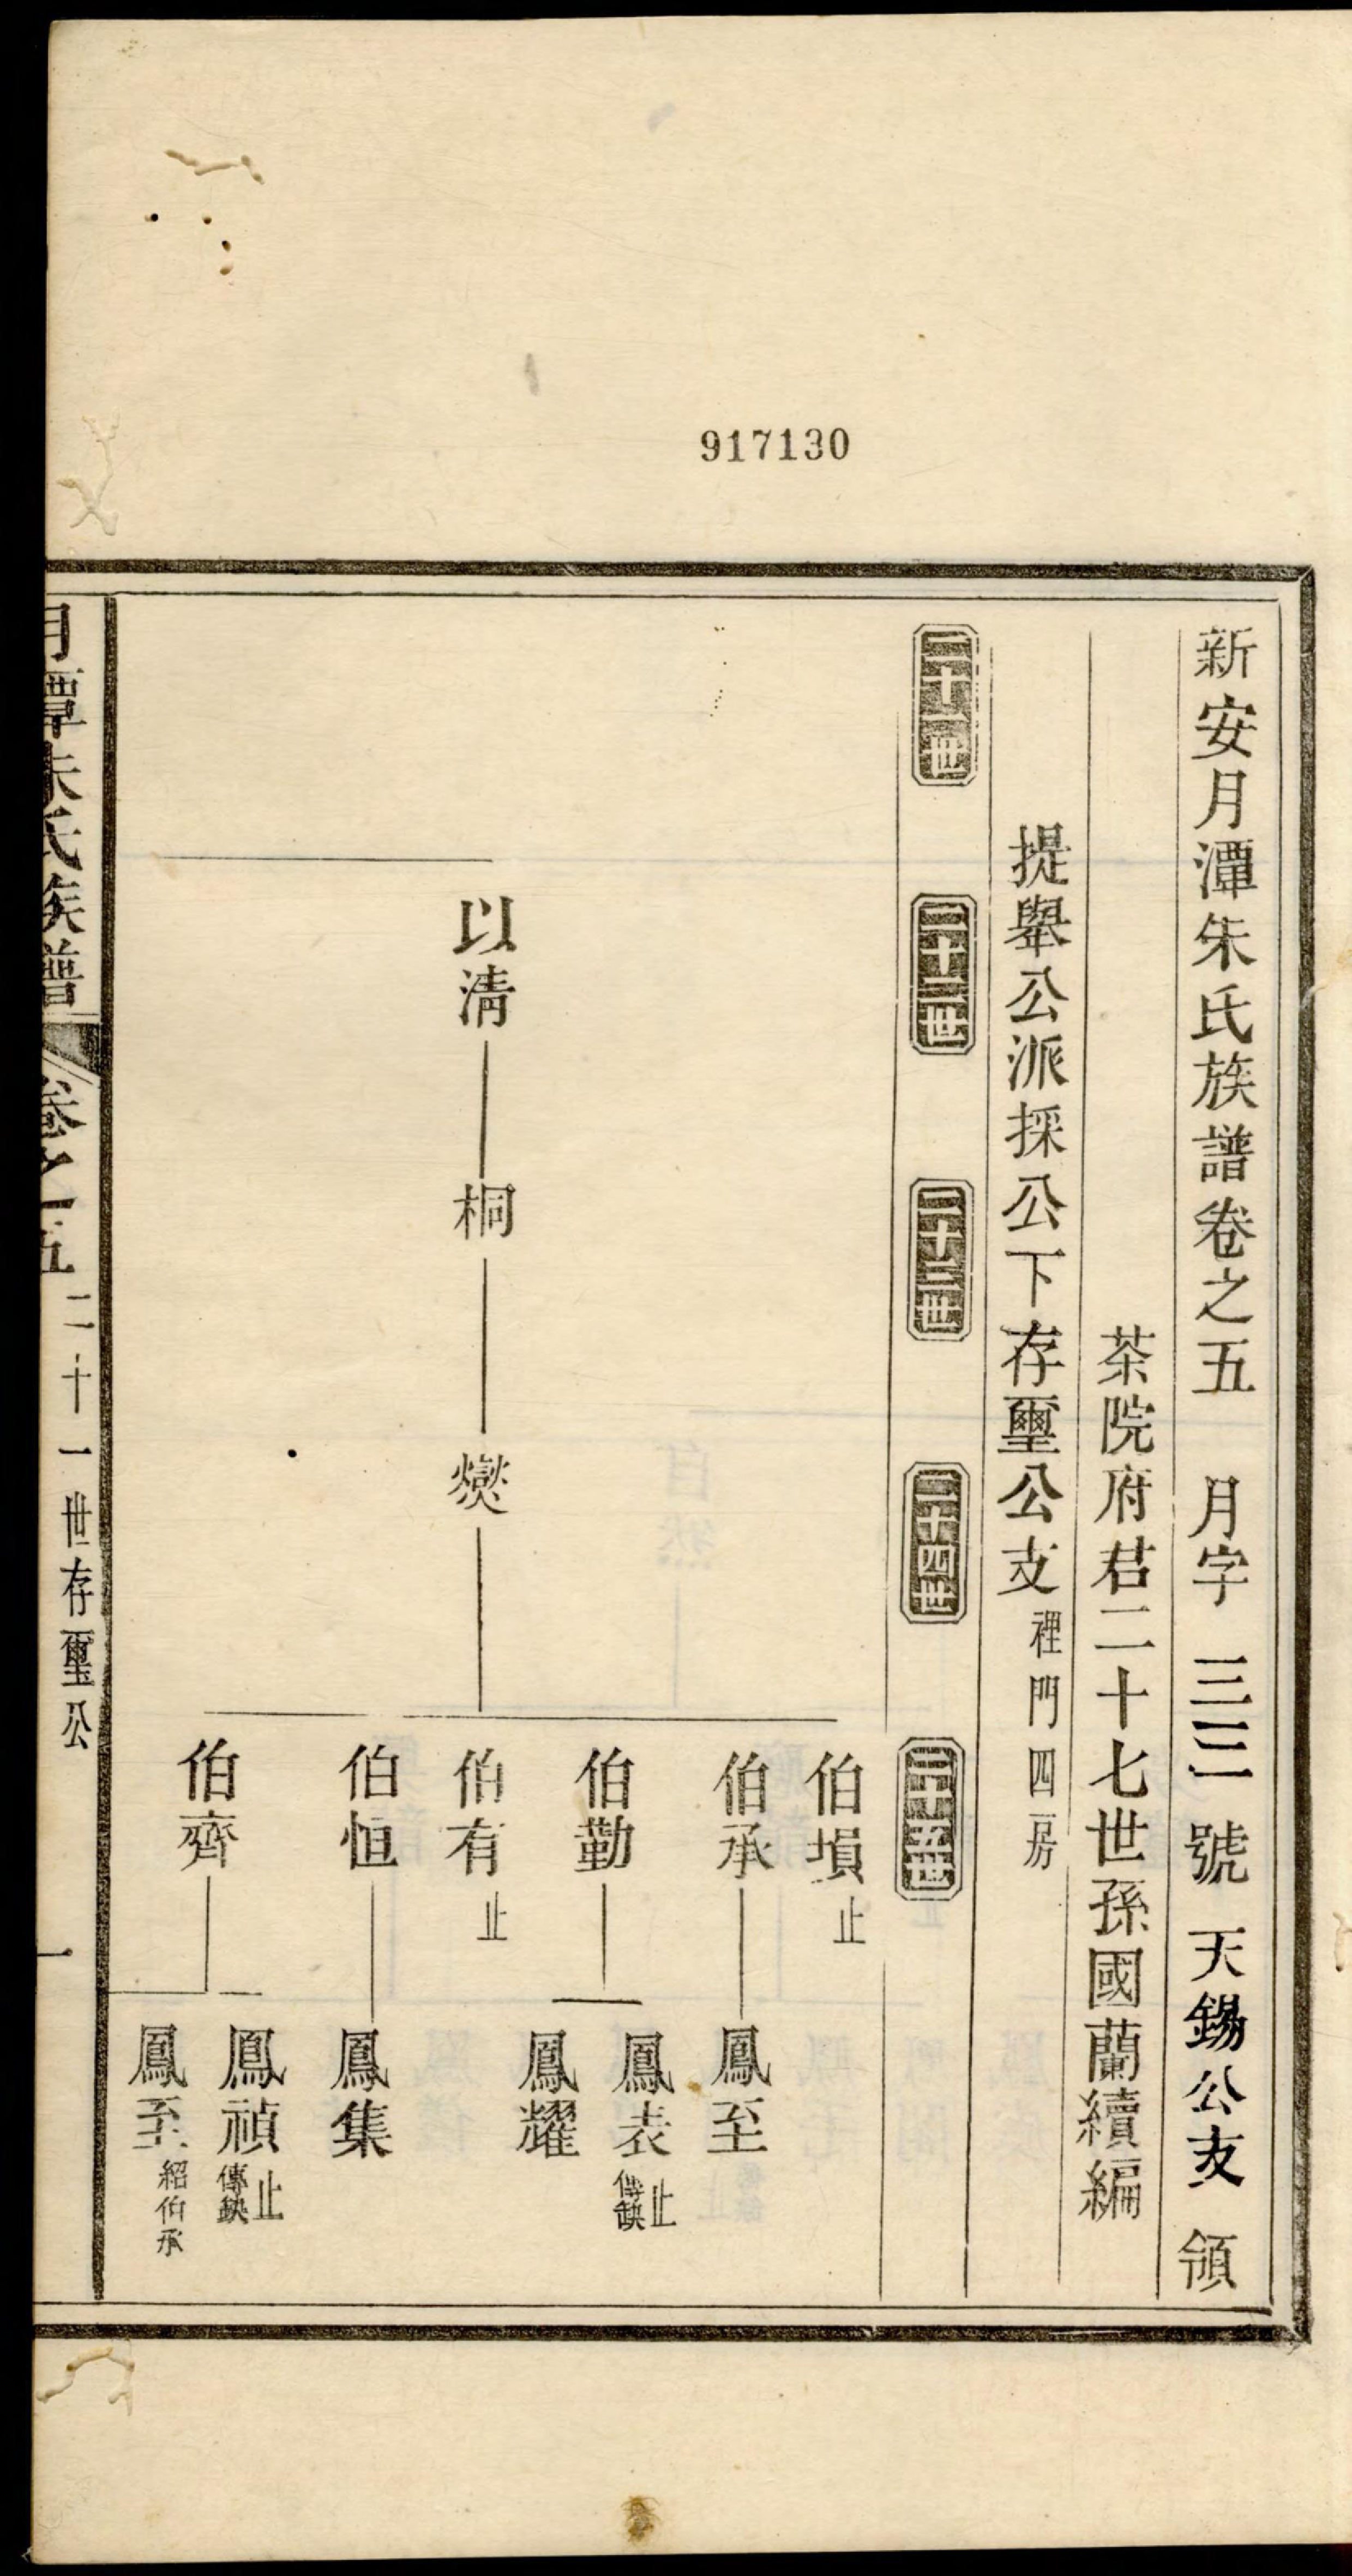 917130
新安月潭朱氏族譜卷之五 月字 三三 號 天錫公支 領
茶院府君二十七世孫國蘭續編
提舉公派採公下存璽公支 裡門四房
二十一世
二十二世
二十三世
二十四世
二十五世
以清
桐
爕
伯塤 止
伯承
伯勤
伯有 止
伯恒
伯齊
鳳至
鳳表 止 傳缺
鳳耀
鳳集
鳳禎 止 傳缺
鳳至 紹伯承
月潭朱氏族譜 卷之五 二十一世存璽公 一